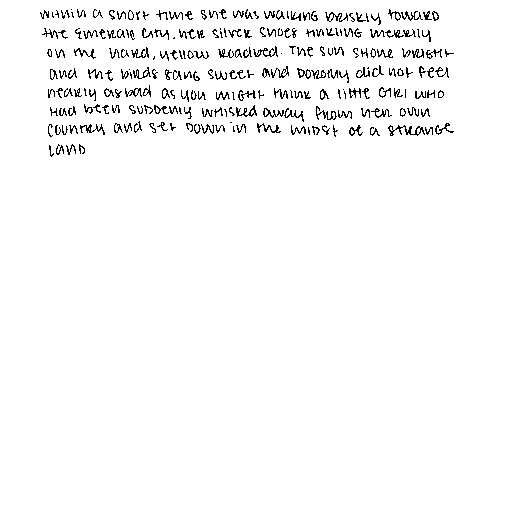 within a short time she was walking briskly toward
the Emerald City, her silver shoes tinkling merrily
on the hard, yellow roadbed. The sun shone bright
and the birds sang sweet and Dorothy did not feel
nearly as bad as you might think a little girl who
had been suddenly whisked away from her own
country and set down in the midst of a strange
land